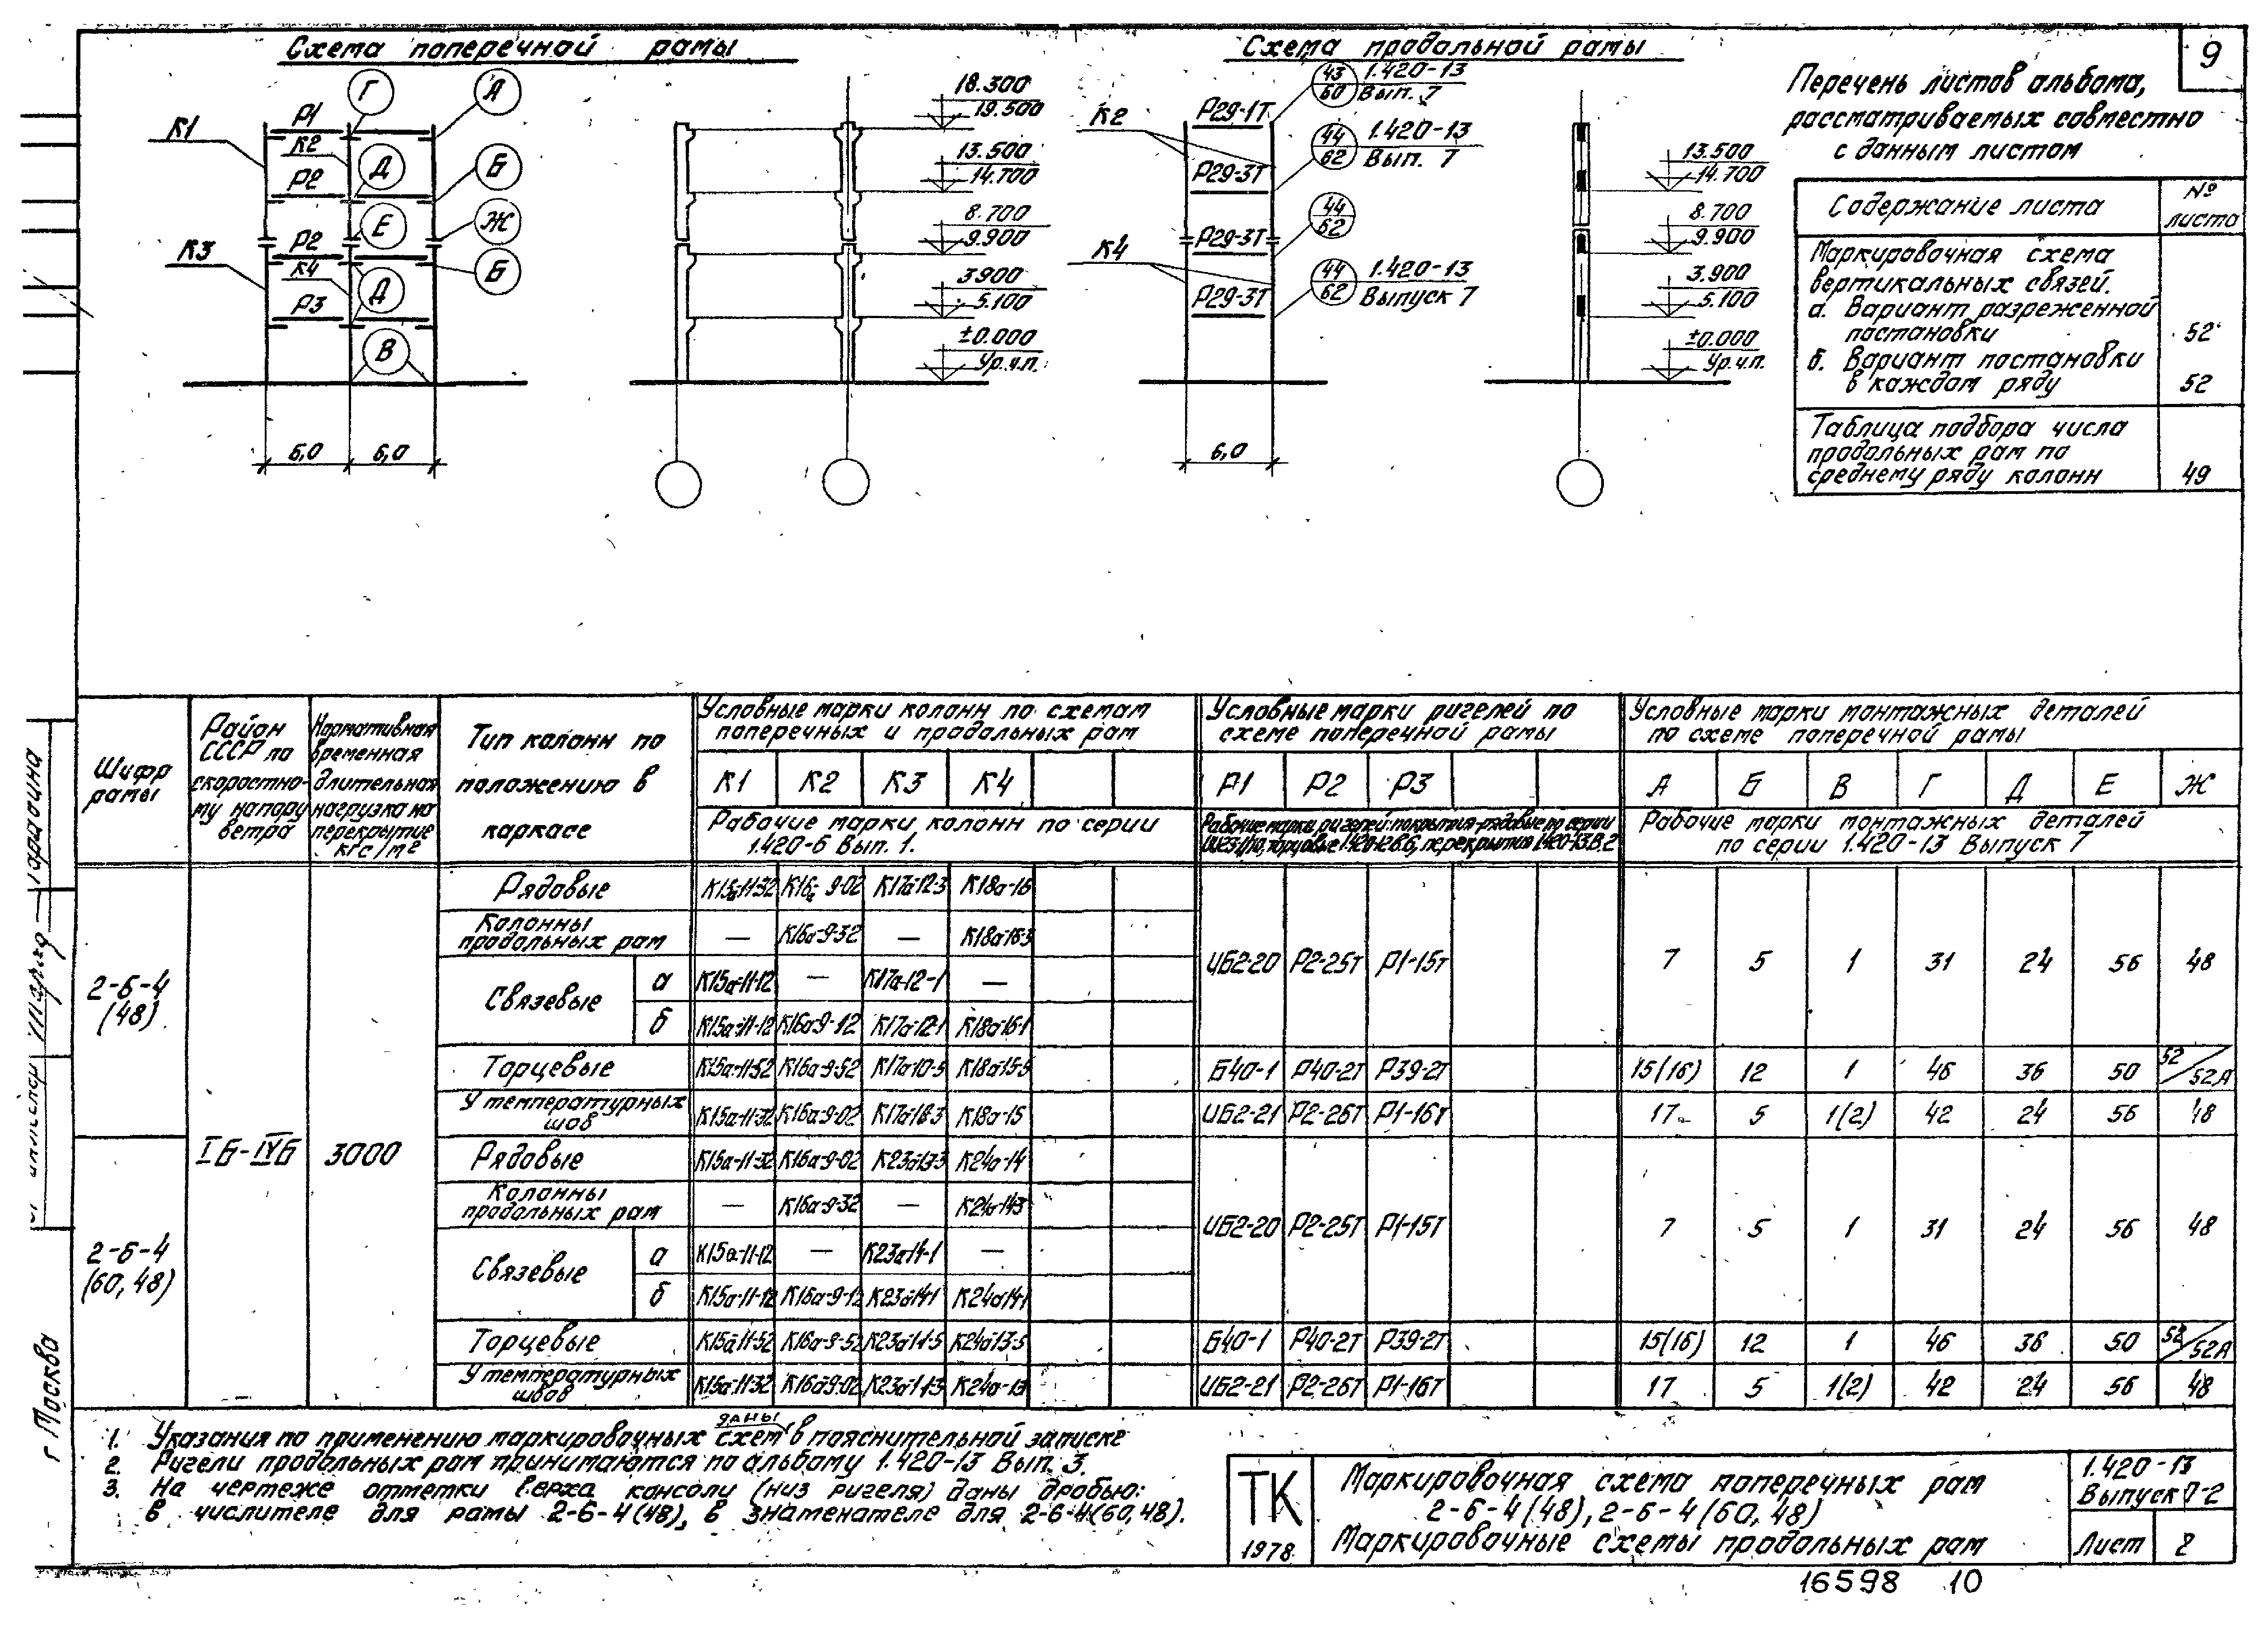 9
Схема поперечной рамы
К1
Р1
К2
Р2
К3
Р2
К4
Р3
Г
А
Д
Б
Е
Ж
Д
Б
В
6,0
6,0
18.300
19.500
13.500
14.700
8.700
9.900
3.900
5.100
±0.000
Ур.ч.п.
Схема продольной рамы
К2
К4
Р29-1Т
Р29-3Т
Р29-3Т
Р29-3Т
43
60
1.420-13
Вып. 7
44
62
1.420-13
Вып. 7
44
62
44
62
1.420-13
Выпуск 7
6,0
13.500
14.700
8.700
9.900
3.900
5.100
±0.000
Ур.ч.п.
Перечень листов альбома,
рассматриваемых совместно
с данным листом
Содержание листа
№ листа
Маркировочная схема
вертикальных связей.
а. Вариант разреженной
постановки 52
б. Вариант постановки
в каждом ряду 52
Таблица подбора числа
продольных рам по
среднему ряду колонн 49
Шифр рамы
Район СССР по скоростному напору ветра
Нормативная временная длительная нагрузка на перекрытие кгс/м²
Тип колонн по положению в каркасе
Условные марки колонн по схемам
поперечных и продольных рам
К1 К2 К3 К4
Рабочие марки колонн по серии
1.420-6 Вып. 1.
Условные марки ригелей по
схеме поперечной рамы
Р1 Р2 Р3
Рабочие марки ригелей: покрытия-рядовые по серии
Условные марки монтажных деталей
по схеме поперечной рамы
А Б В Г Д Е Ж
Рабочие марки монтажных деталей
по серии 1.420-13 Выпуск 7
2-6-4
(48)
IБ-IVБ
3000
Рядовые К15а-11-32 К16а-9-02 К17а-12-3 К18а-16
Колонны
продольных рам — К16а-9-32 — К18а-16-3
Связевые
а К15а-11-12 — К17а-12-1 —
б К15а-11-12 К16а-9-12 К17а-12-1 К18а-16-1
ИБ2-20 Р2-25т Р1-15т 7 5 1 31 24 56 48
Торцевые К15а-11-52 К16а-9-52 К17а-10-5 К18а-15-5 Б40-1 Р40-2т Р39-2т 15(16) 12 1 46 36 50 52/52А
У температурных
шов К15а-11-32 К16а-9-02 К17а-18-3 К18а-15 ИБ2-21 Р2-26т Р1-16т 17 5 1(2) 42 24 56 48
2-6-4
(60,48)
Рядовые К15а-11-32 К16а-9-02 К23а-13-3 К24а-14
Колонны
продольных рам — К16а-9-32 — К24а-14-3
Связевые
а К15а-11-12 — К23а-14-1 —
б К15а-11-12 К16а-9-12 К23а-14-1 К24а-14-1
ИБ2-20 Р2-25Т Р1-15Т 7 5 1 31 24 56 48
Торцевые К15а-11-52 К16а-9-52 К23а-11-5 К24а-13-5 Б40-1 Р40-2Т Р39-2Т 15(16) 12 1 46 36 50 52/52А
У температурных
швов К15а-11-32 К16а-9-02 К23а-11-3 К24а-13 ИБ2-21 Р2-26Т Р1-16Т 17 5 1(2) 42 24 56 48
г Москва
1. Указания по применению маркировочных схем даны в пояснительной записке
2. Ригели продольных рам принимаются по альбому 1.420-13 Вып. 3.
3. На чертеже отметки верха консоли (низ ригеля) даны дробью:
в числителе для рамы 2-6-4(48), в знаменателе для 2-6-4(60,48).
ТК
1978
Маркировочная схема поперечных рам
2-6-4(48), 2-6-4(60,48)
Маркировочные схемы продольных рам
1.420-13
Выпуск 0-2
Лист 2
16598 10